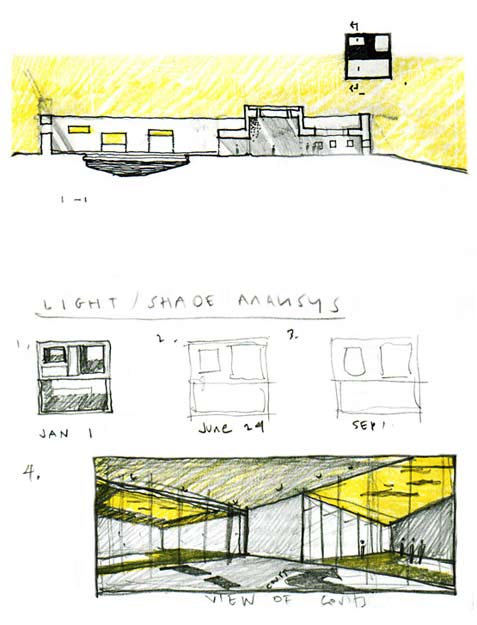 1 - 1
LIGHT / SHADE ANALYSYS
1. 2. 3.
JAN 1 June 24 SEP 1.
4.
COURT
VIEW OF COURTS